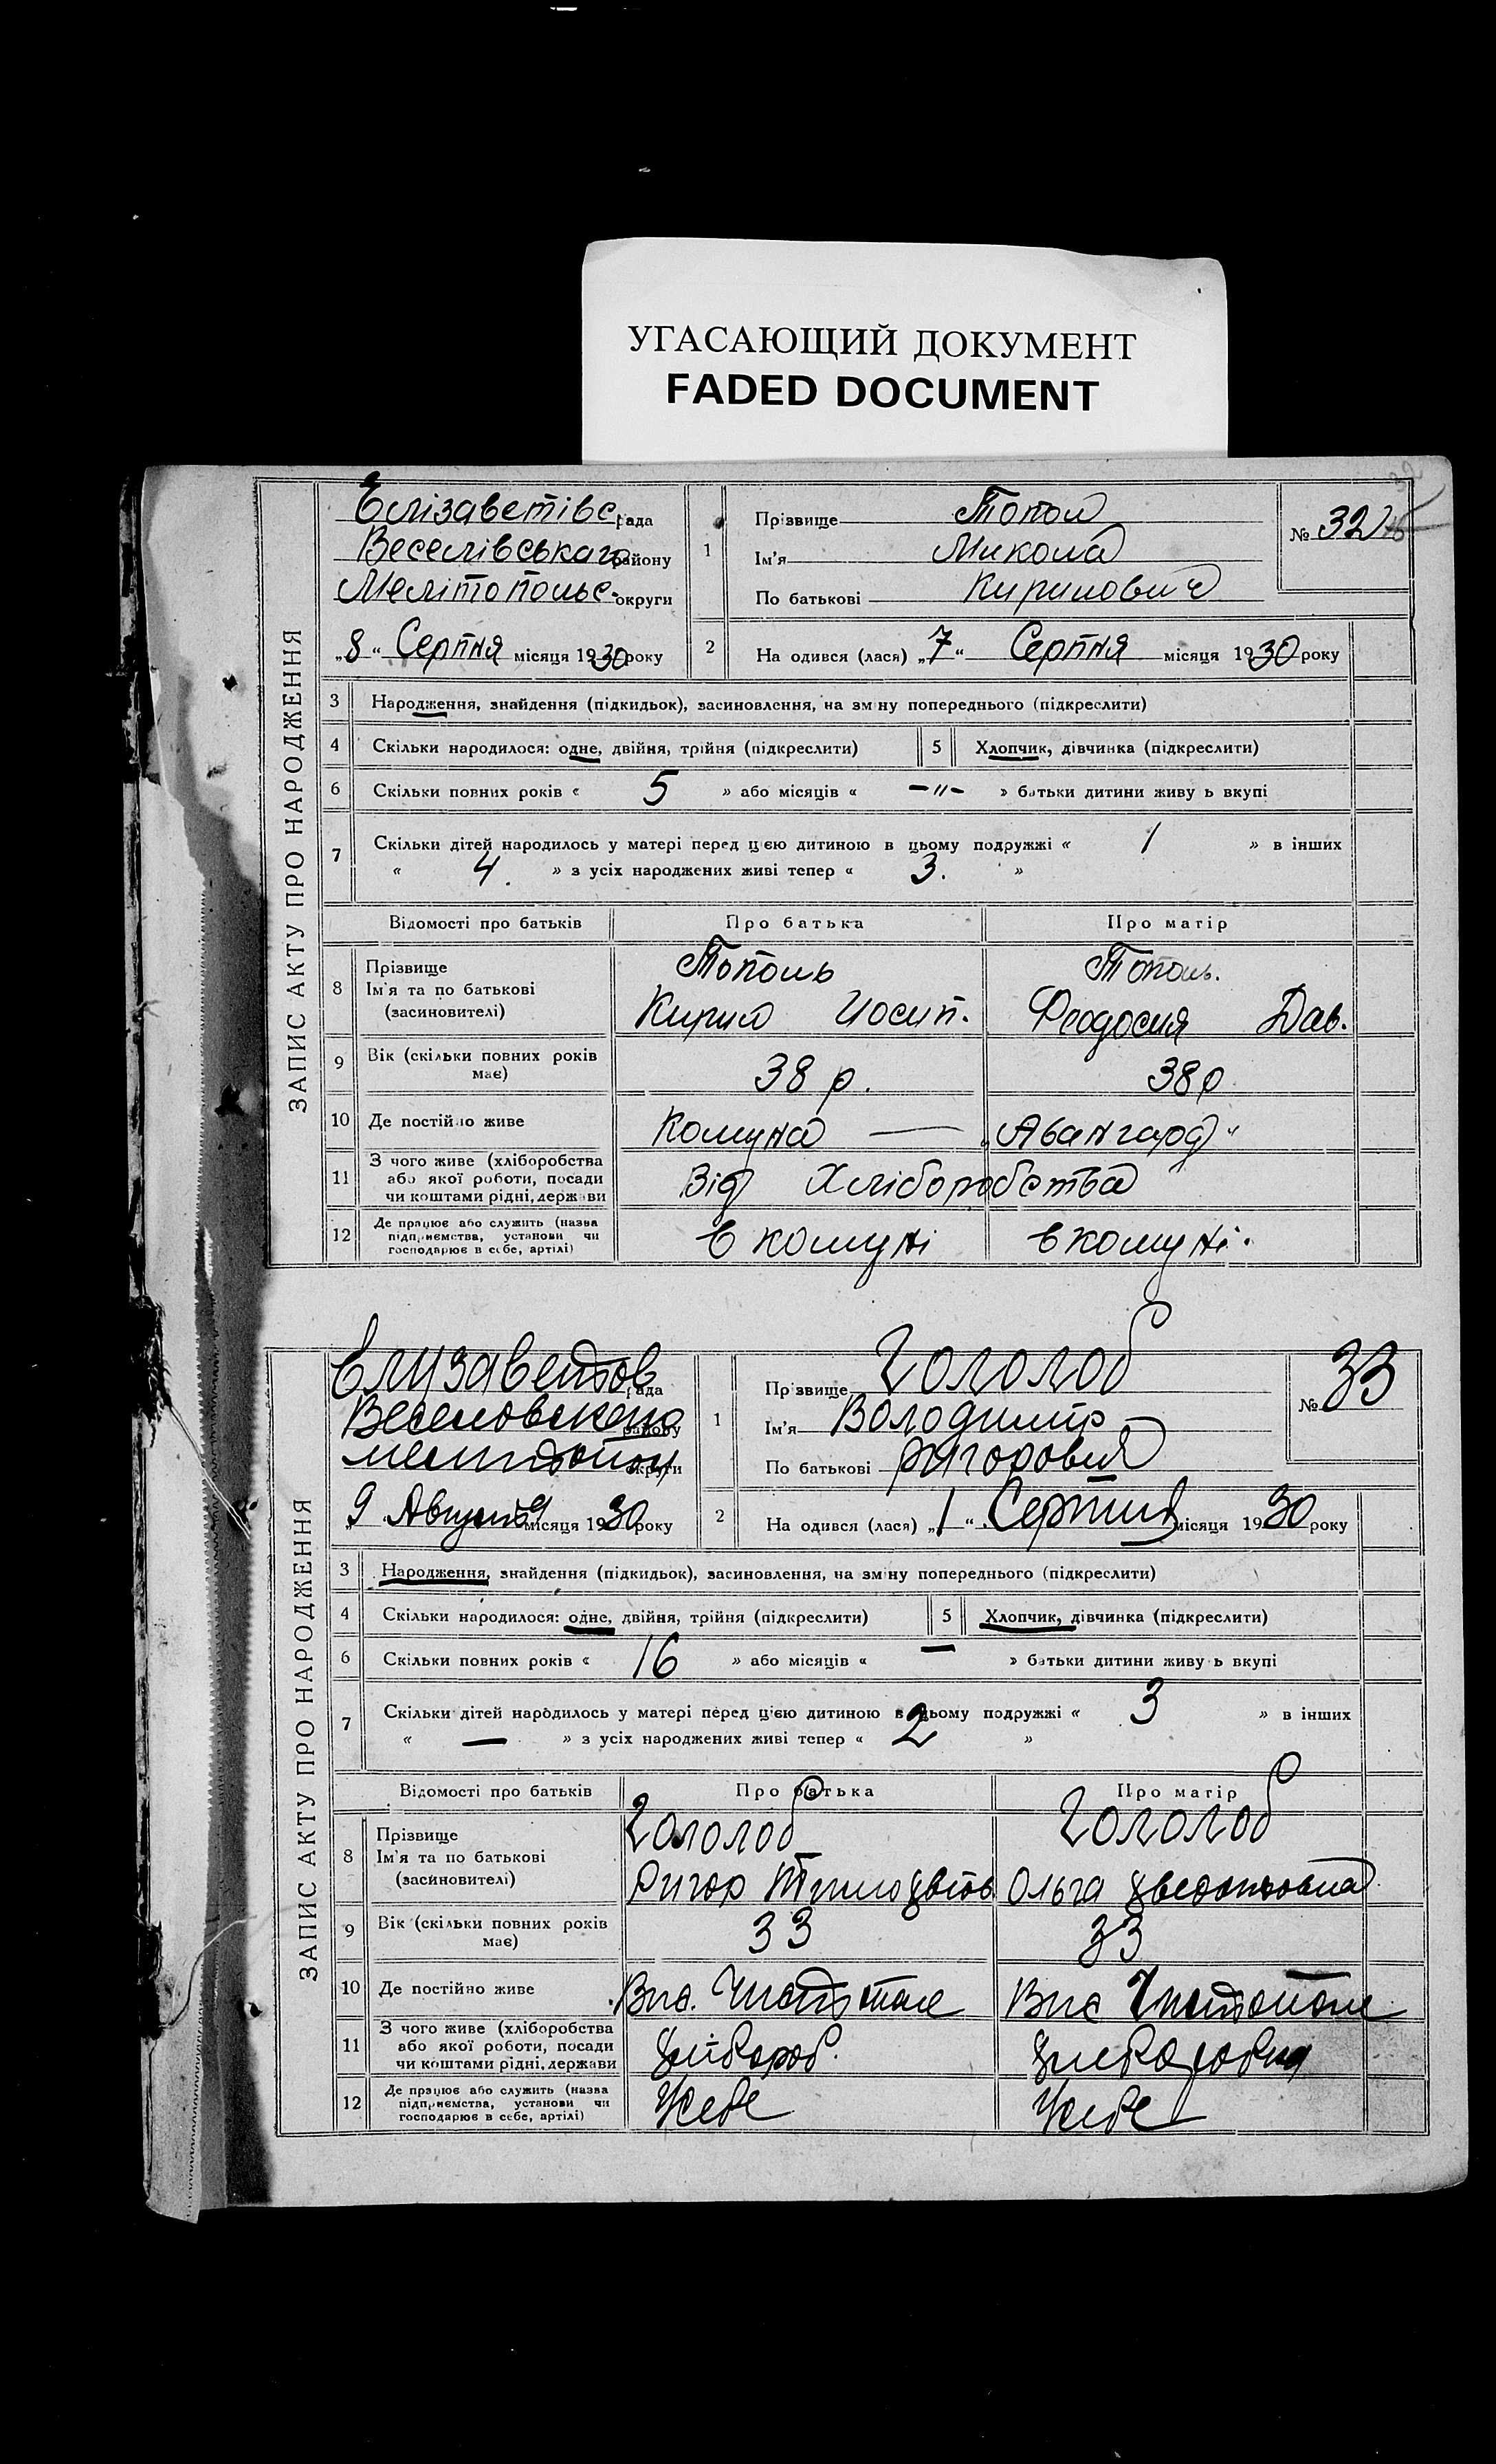 УГАСАЮЩИЙ ДОКУМЕНТ
FADED DOCUMENT
32
ЗАПИС АКТУ ПРО НАРОДЖЕННЯ
Єлізаветівс рада
Веселівського району
Мелітопольс. округи
„8“ Серпня місяця 1930 року
1
Прізвище Топол
Ім'я Микола
По батькові Кирилович
№ 32
2 На одився (лася) „7“ Серпня місяця 1930 року
3 Народження, знайдення (підкидьок), засиновлення, на зміну попереднього (підкреслити)
4 Скільки народилося: одне, двійня, трійня (підкреслити) 5 Хлопчик, дівчинка (підкреслити)
6 Скільки повних років « 5 » або місяців « –"– » батьки дитини живу ь вкупі
7 Скільки дітей народилось у матері перед цією дитиною в цьому подружжі « 1 » в інших
« 4. » з усіх народжених живі тепер « 3. »
Відомості про батьків Про батька Про матір
8 Прізвище
Ім'я та по батькові
(засиновителі)
Тополь Тополь.
Кирил Йосип. Феодосия Дав.
9 Вік (скільки повних років має) 38 р. 38 р
10 Де постійно живе Комуна — „Авангард“
11 З чого живе (хліборобства
або якої роботи, посади
чи коштами рідні, держави
Від Хліборобства
12 Де працює або служить (назва
підприємства, установи чи
господарює в себе, артілі)
в комуні в комуні.
ЗАПИС АКТУ ПРО НАРОДЖЕННЯ
Елизаветов рада
Веселовского району
округи
9 Августа місяця 1930 року
1
Прізвище Гололоб
Ім'я Володимір
По батькові Ригорович
№ 33
2 На одився (лася) „1“ Серпня місяця 1930 року
3 Народження, знайдення (підкидьок), засиновлення, на зміну попереднього (підкреслити)
4 Скільки народилося: одне, двійня, трійня (підкреслити) 5 Хлопчик, дівчинка (підкреслити)
6 Скільки повних років « 16 » або місяців « — » батьки дитини живу ь вкупі
7 Скільки дітей народилось у матері перед цією дитиною в цьому подружжі « 3 » в інших
« — » з усіх народжених живі тепер « 2 »
Відомості про батьків Про батька Про матір
8 Прізвище
Ім'я та по батькові
(засиновителі)
Гололоб Гололоб
Ригор Ольга
9 Вік (скільки повних років має) 33 33
10 Де постійно живе
11 З чого живе (хліборобства
або якої роботи, посади
чи коштами рідні, держави
12 Де працює або служить (назва
підприємства, установи чи
господарює в себе, артілі)
Усебе Усебе